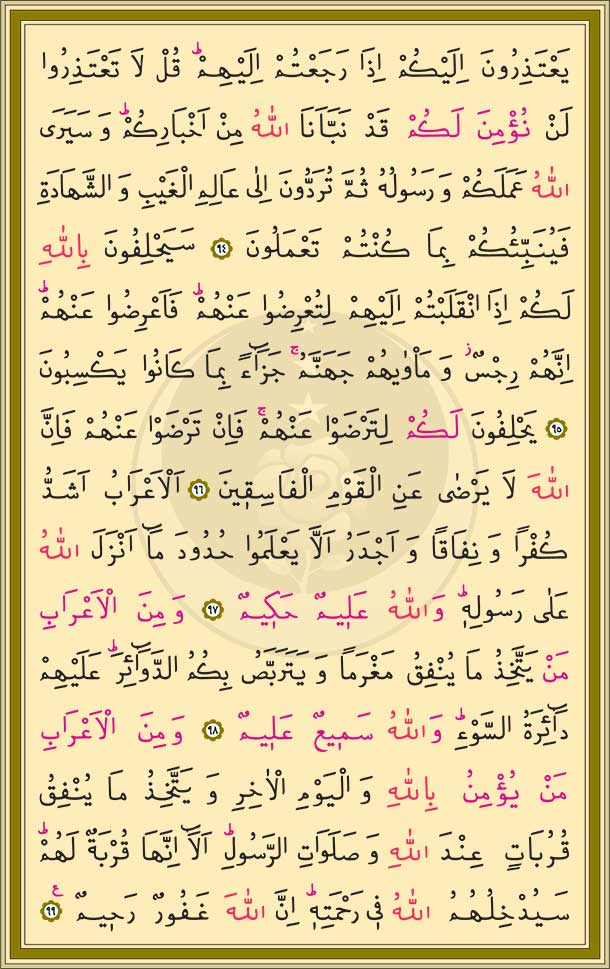 يَعْتَذِرُونَ اِلَيْكُمْ اِذَا رَجَعْتُمْ اِلَيْهِمْۜ قُلْ لَا تَعْتَذِرُوا
لَنْ نُؤْمِنَ لَكُمْ قَدْ نَبَّاَنَا اللّٰهُ مِنْ اَخْبَارِكُمْۜ وَ سَيَرَى
اللّٰهُ عَمَلَكُمْ وَ رَسُولُهُ ثُمَّ تُرَدُّونَ اِلٰى عَالِمِ الْغَيْبِ وَ الشَّهَادَةِ
فَيُنَبِّئُكُمْ بِمَا كُنْتُمْ تَعْمَلُونَ ﴿٩٤﴾ سَيَحْلِفُونَ بِاللّٰهِ
لَكُمْ اِذَا انْقَلَبْتُمْ اِلَيْهِمْ لِتُعْرِضُوا عَنْهُمْۜ فَاَعْرِضُوا عَنْهُمْۜ
اِنَّهُمْ رِجْسٌۘ وَ مَاْوٰيهُمْ جَهَنَّمُۚ جَزَٓاءً بِمَا كَانُوا يَكْسِبُونَ
﴿٩٥﴾ يَحْلِفُونَ لَكُمْ لِتَرْضَوْا عَنْهُمْۚ فَاِنْ تَرْضَوْا عَنْهُمْ فَاِنَّ
اللّٰهَ لَا يَرْضٰى عَنِ الْقَوْمِ الْفَاسِق۪ينَ ﴿٩٦﴾ اَلْاَعْرَابُ اَشَدُّ
كُفْرًا وَ نِفَاقًا وَ اَجْدَرُ اَلَّا يَعْلَمُوا حُدُودَ مَٓا اَنْزَلَ اللّٰهُ
عَلٰى رَسُولِه۪ۜ وَاللّٰهُ عَل۪يمٌ حَك۪يمٌ ﴿٩٧﴾ وَ مِنَ الْاَعْرَابِ
مَنْ يَتَّخِذُ مَا يُنْفِقُ مَغْرَمًا وَ يَتَرَبَّصُ بِكُمُ الدَّوَٓائِرَۜ عَلَيْهِمْ
دَٓائِرَةُ السَّوْءِۜ وَاللّٰهُ سَم۪يعٌ عَل۪يمٌ ﴿٩٨﴾ وَ مِنَ الْاَعْرَابِ
مَنْ يُؤْمِنُ بِاللّٰهِ وَ الْيَوْمِ الْاٰخِرِ وَ يَتَّخِذُ مَا يُنْفِقُ
قُرُبَاتٍ عِنْدَ اللّٰهِ وَ صَلَوَاتِ الرَّسُولِۜ اَلَٓا اِنَّهَا قُرْبَةٌ لَهُمْۜ
سَيُدْخِلُهُمُ اللّٰهُ ف۪ي رَحْمَتِه۪ۜ اِنَّ اللّٰهَ غَفُورٌ رَح۪يمٌ ﴿٩٩﴾ ع